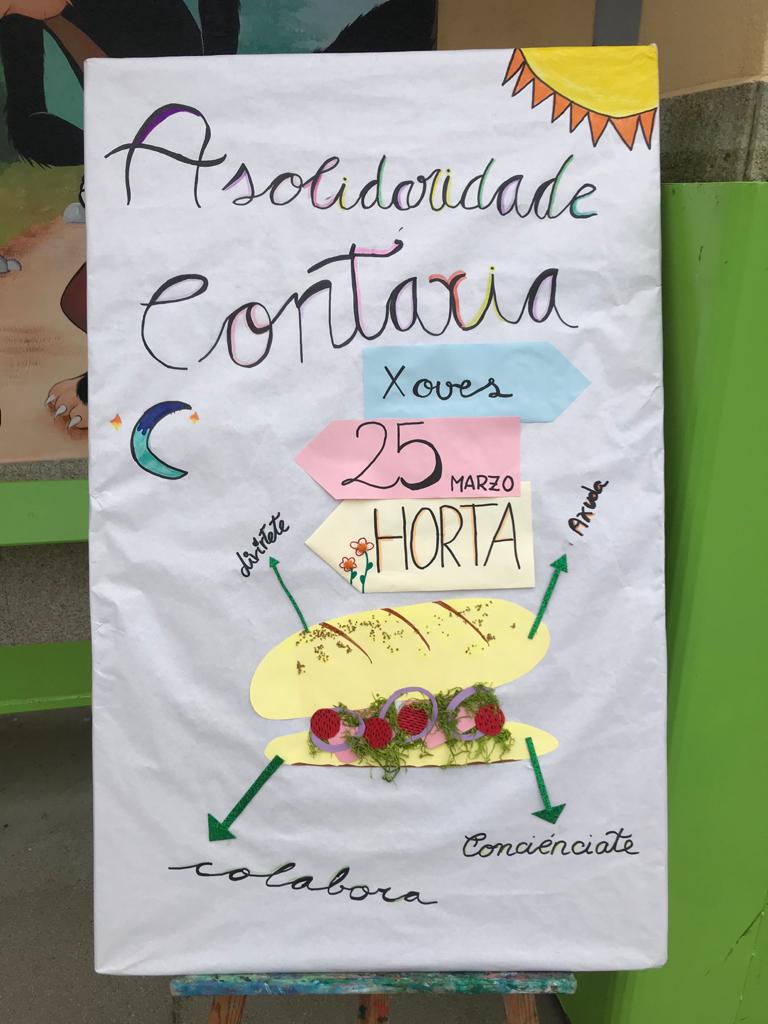 A solidaridade
Contaxia
Xoves
25 MARZO
HORTA
divírtete
Axuda
colabora
Conciénciate